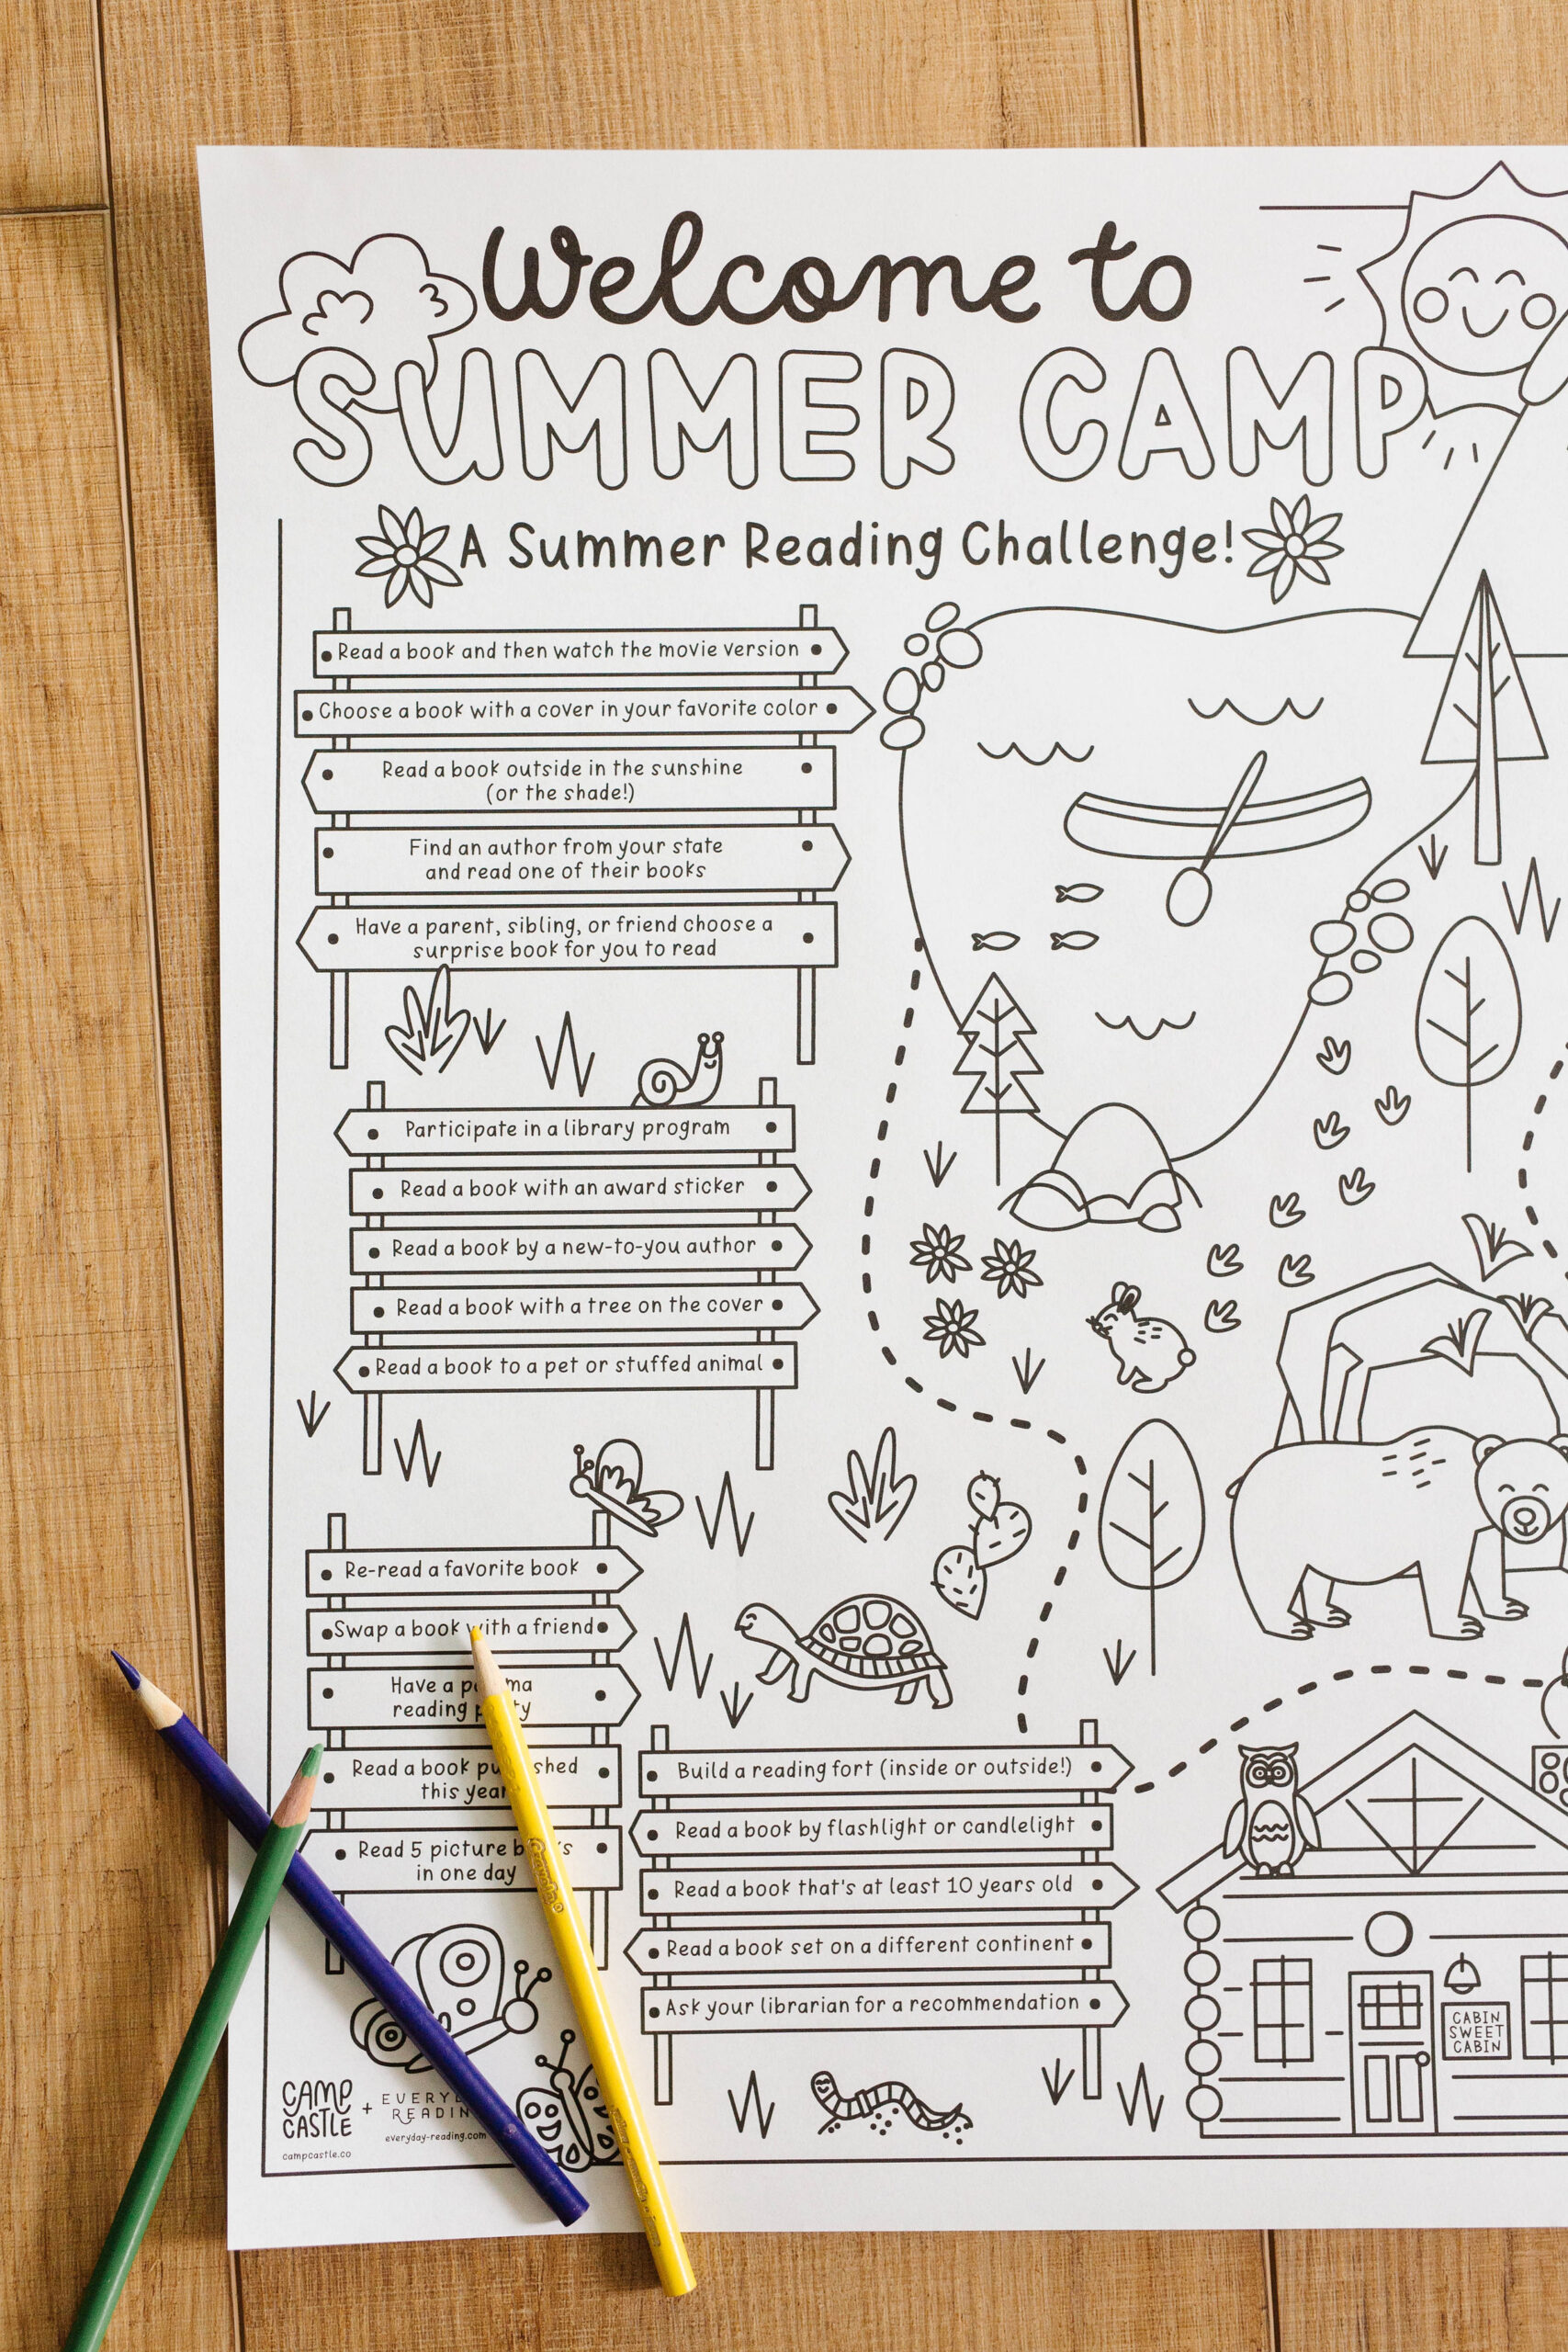 Welcome to
SUMMER CAMP
A Summer Reading Challenge!
Read a book and then watch the movie version
Choose a book with a cover in your favorite color
Read a book outside in the sunshine
(or the shade!)
Find an author from your state
and read one of their books
Have a parent, sibling, or friend choose a
surprise book for you to read
Participate in a library program
Read a book with an award sticker
Read a book by a new-to-you author
Read a book with a tree on the cover
Read a book to a pet or stuffed animal
Re-read a favorite book
Swap a book with a friend
Have a
reading
Read a book
this year
Read 5 picture
in one day
Build a reading fort (inside or outside!)
Read a book by flashlight or candlelight
Read a book that's at least 10 years old
Read a book set on a different continent
Ask your librarian for a recommendation
CABIN
SWEET
CABIN
CAMP
CASTLE
campcastle.co
+
everyday-reading.com
Crayola